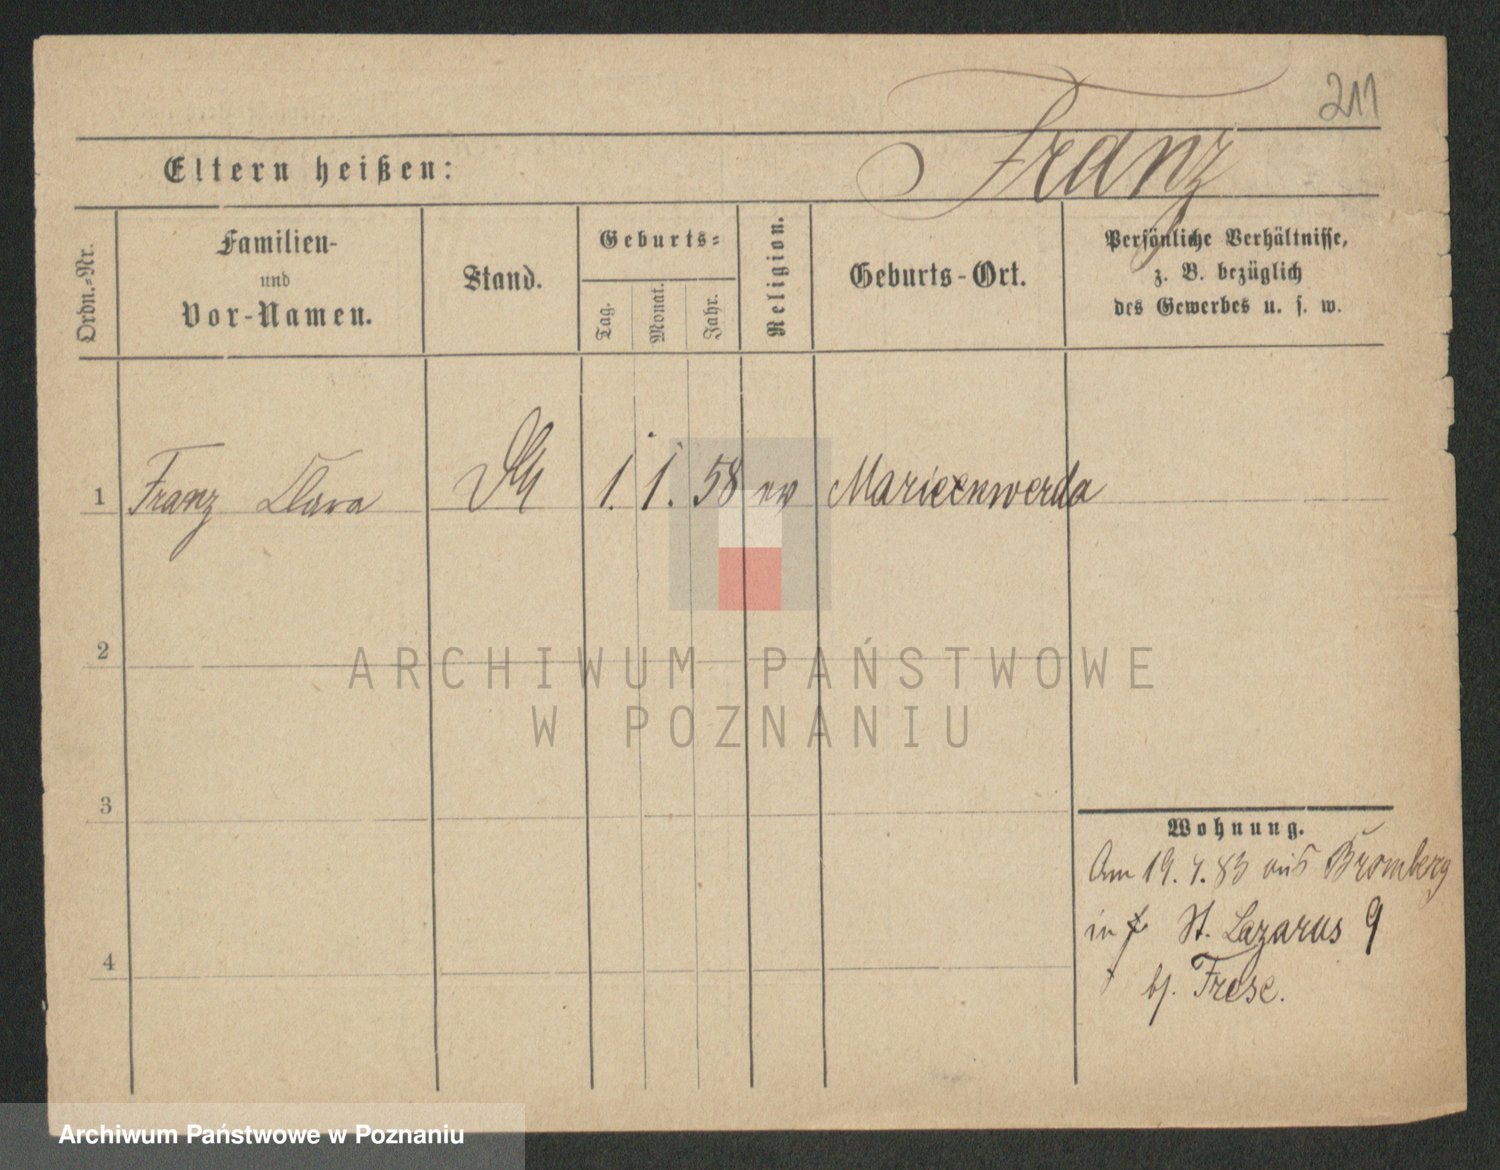 211
Franz
Eltern heißen:
Ordn.-Nr.
Familien-
und
Vor-Namen.
Stand.
Geburts-
Tag.
Monat.
Jahr.
Religion.
Geburts-Ort.
Persönliche Verhältnisse,
z. B. bezüglich
des Gewerbes u. s. w.
1 Franz Clara 1. 1. 58 ev
2
3
4
Wohnung.
Am 19. 4. 83 aus Bromberg
in St. Lazarus 9
bj. Frese.
ARCHIWUM PAŃSTWOWE
W POZNANIU
Archiwum Państwowe w Poznaniu